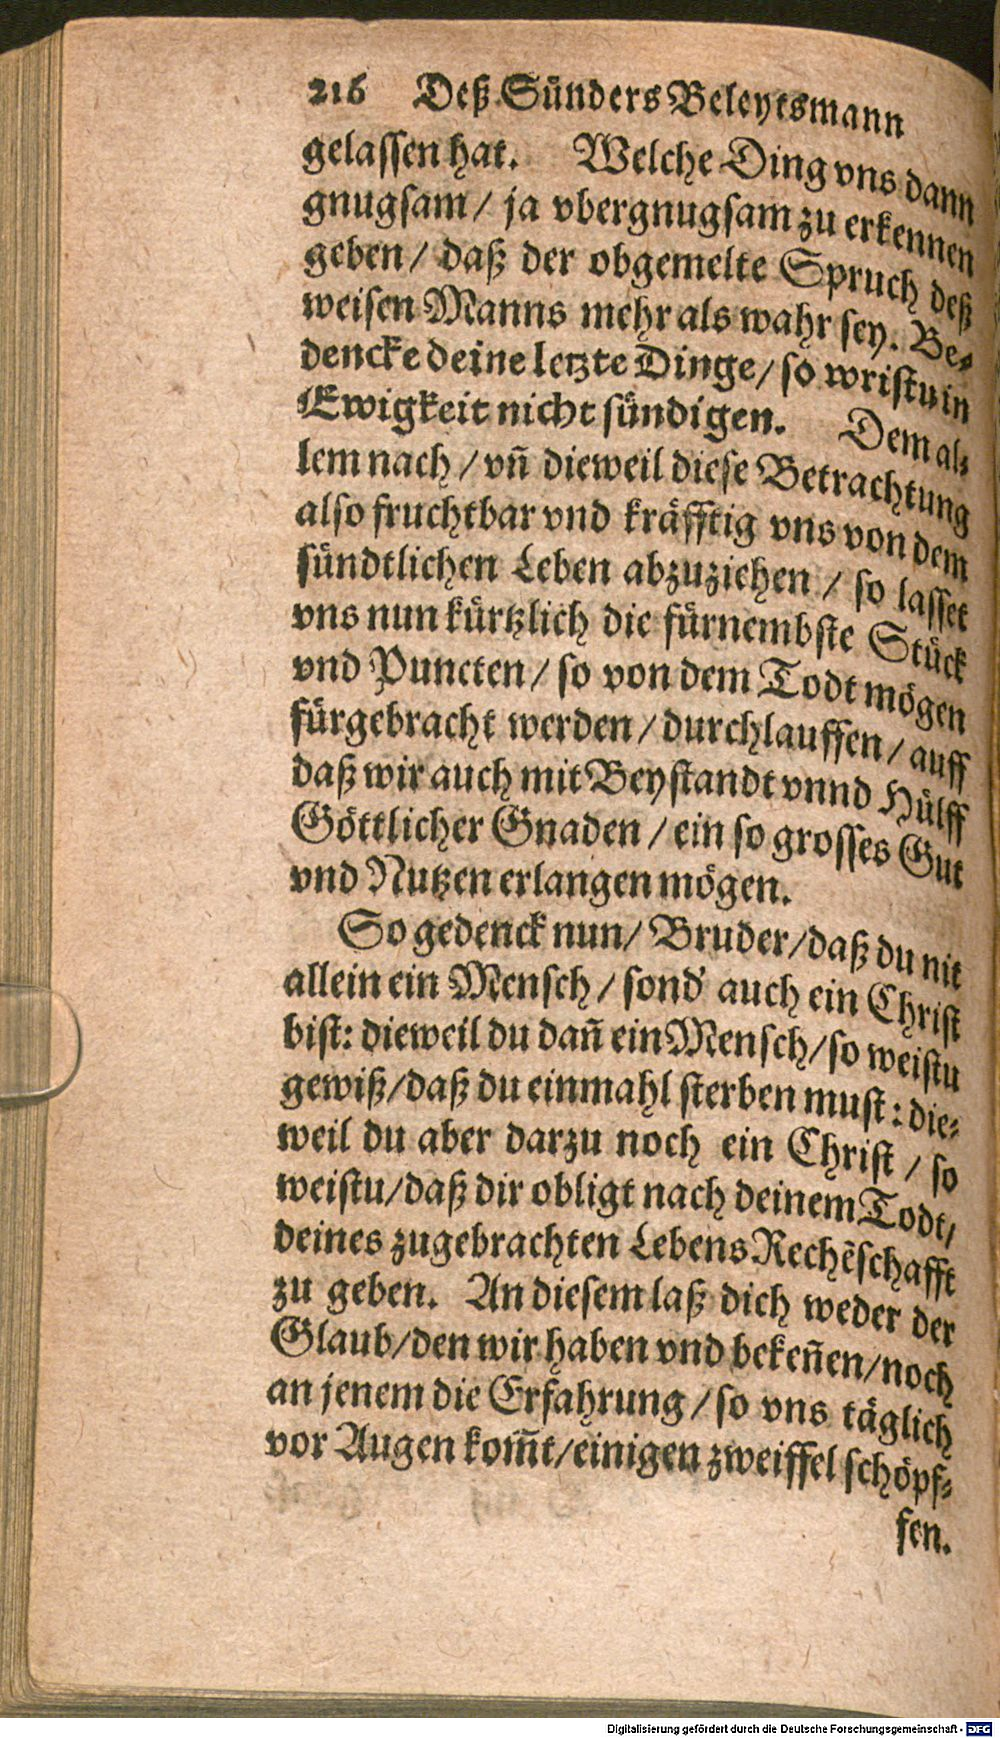 216 Deß Sünders Beleytsmann
gelassen hat. Welche Ding vns dann
gnugsam/ ja vbergnugsam zu erkennen
geben/ daß der obgemelte Spruch deß
weisen Manns mehr als wahr sey. Be-
dencke deine letzte Dinge/ so wristu in
Ewigkeit nicht sündigen. Dem al-
lem nach/ vñ dieweil diese Betrachtung
also fruchtbar vnd kräfftig vns von dem
sündtlichen Leben abzuziehen/ so lasset
vns nun kürtzlich die fürnembste Stück
vnd Puncten/ so von dem Todt mögen
fürgebracht werden/ durchlauffen/ auff
daß wir auch mit Beystandt vnnd Hülff
Göttlicher Gnaden/ ein so grosses Gut
vnd Nutzen erlangen mögen.
So gedenck nun/ Bruder/ daß du nit
allein ein Mensch/ sond' auch ein Christ
bist: dieweil du dañ ein Mensch/ so weistu
gewiß/ daß du einmahl sterben must: die-
weil du aber darzu noch ein Christ/ so
weistu/ daß dir obligt nach deinem Todt/
deines zugebrachten Lebens Rechẽschafft
zu geben. An diesem laß dich weder der
Glaub/ den wir haben vnd bekeñen/ noch
an jenem die Erfahrung/ so vns täglich
vor Augen kom̃t/ einigen zweiffel schöpf-
fen.
Digitalisierung gefördert durch die Deutsche Forschungsgemeinschaft - DFG